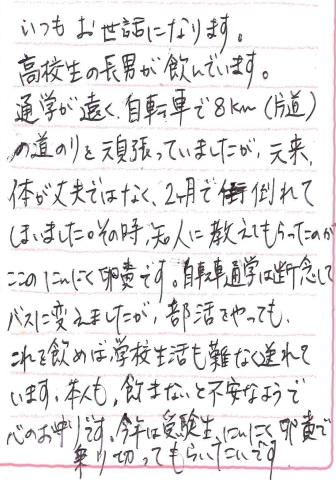 いつもお世話になります。
高校生の長男が飲んでいます。
通学が遠く、自転車で8km(片道)
の道のりを頑張っていましたが、元来、
体が丈夫ではなく、2ヶ月で倒れて
しまいました。その時、知人に教えてもらったのが
ここのにんにく卵黄です。自転車通学は断念して
バスに変えましたが、部活をやっても、
これを飲めば学校生活も難なく送れて
います。本人も、飲まないと不安なようで
心のお守りです。今年は受験生、にんにく卵黄で
乗り切ってもらいたいです